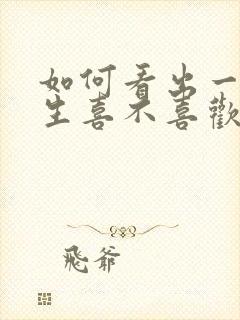 如何看出一
生喜不喜歡
飛爺